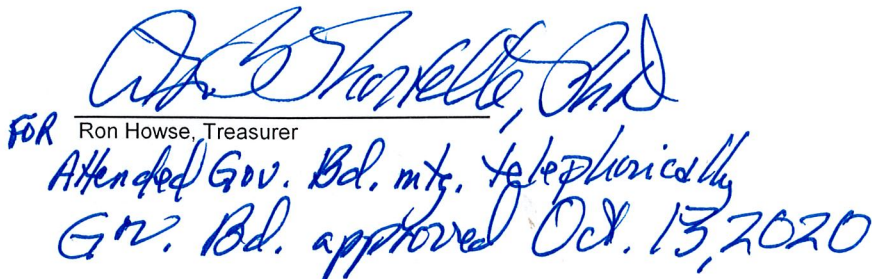 PhD
FOR Ron Howse, Treasurer
Attended Gov. Bd. mtg. telephonically
Gov. Bd. approved Oct. 13, 2020